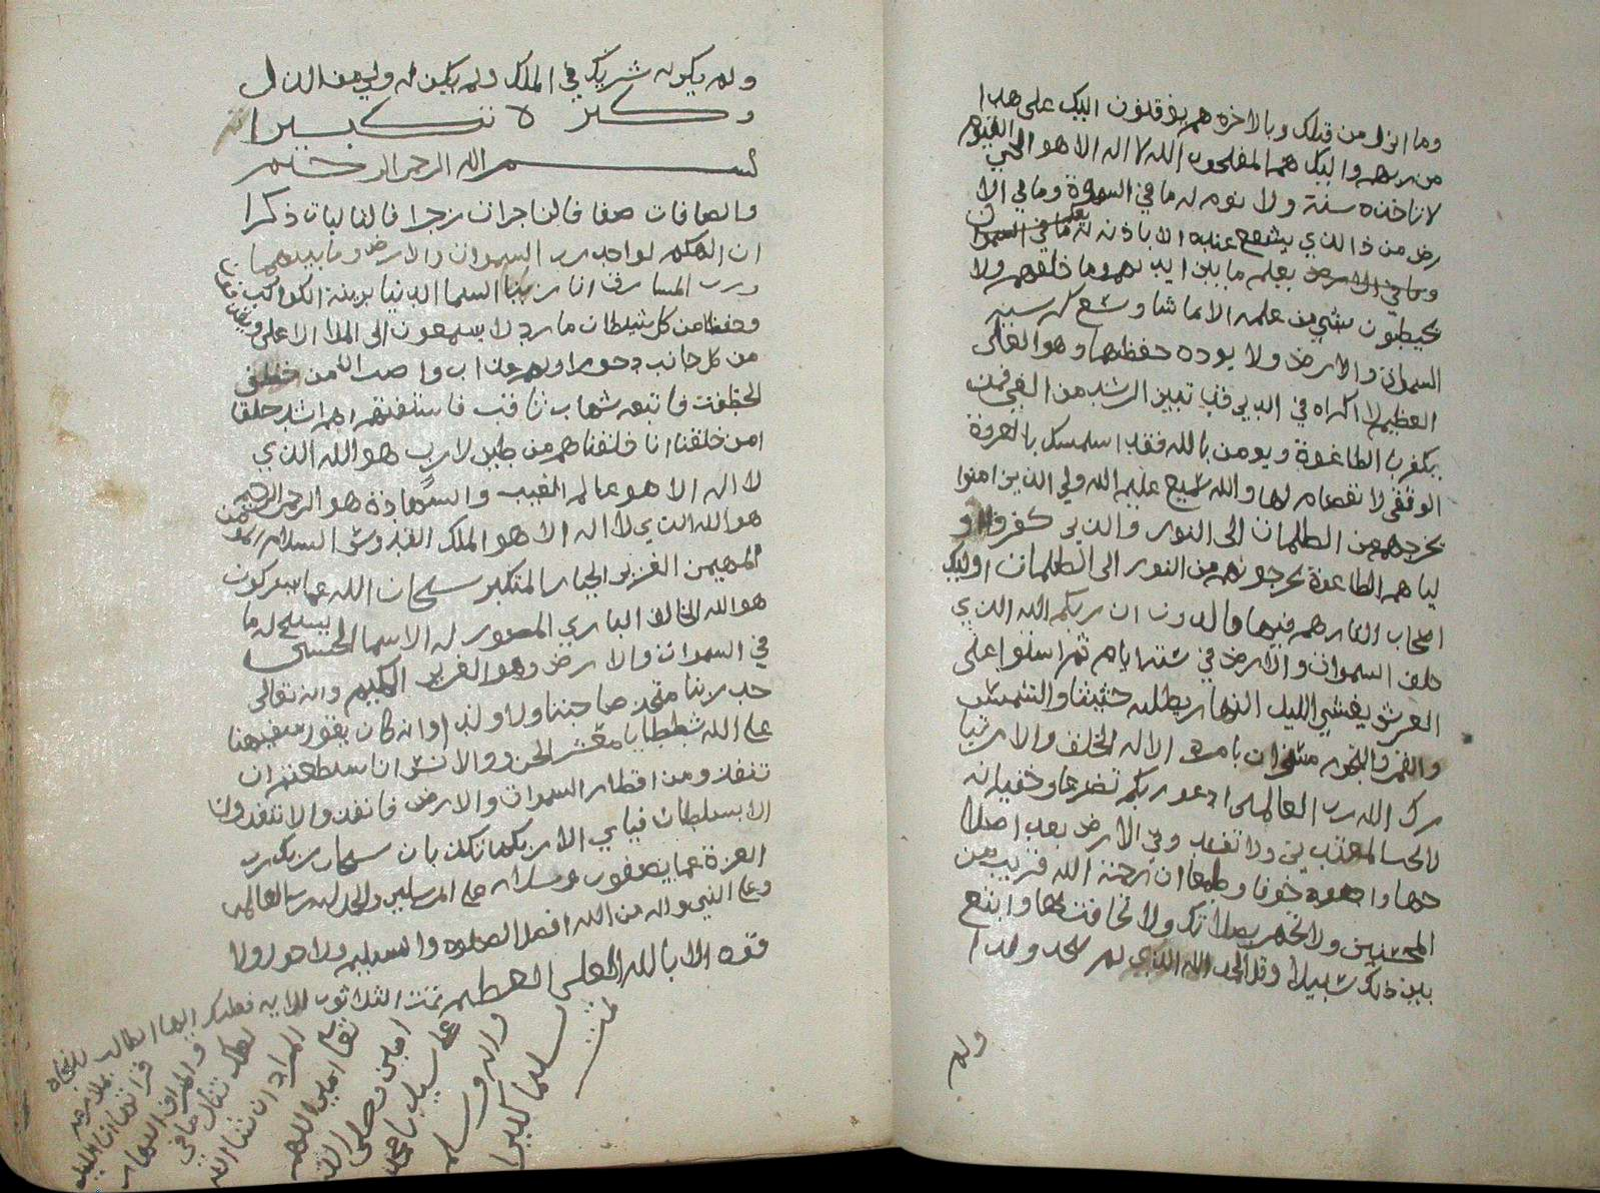 وما انزل من قبلك وبالاخرة هم يوقنون اليك على هدا
من ربهم واليك هم المفلحون الله لا اله الا هو الحي القيوم
لا تاخذه سنة ولا نوم له ما في السموة وما في الا
رض من ذا الذي يشفع عنده الا باذنه يعلم ما في السموات
وما في الارض يعلم ما بين ايديهم وما خلفهم ولا
يحيطون بشي من علمه الا بما شا وسع كرسيه
السموات والارض ولا يوده حفظهما وهو العلي
العظيم لا اكراه في الدين قد تبين الرشد من الغي فمن
يكفر با الطاغوة ويومن بالله فقد استمسك بالعروة
الوثقى لا نفصام لها والله سميع عليم الله ولي الذين امنوا
يخرجهم من الظلمات الى النور والذين كفروا او
لياهم الطاغوة يخرجونهم من النور الى الظلمات اوليك
اصحاب النار هم فيها خالدون ان ربكم الله الذي
خلق السموات والارض في ستة ايام ثم استوا على
العرش يغشي الليل النهار يطلبه حثيثا والشمس
والقمر والنجوم مسخرات بامره الا له الخلق والامر تبا
رك الله رب العالمين ادعو ربكم تضرعا وخفيا انه
لا يحب المعتدين ولا تفسد وفي الارض بعد اصلا
حها وادعوه خوفا وطمعا ان رحمة الله قريب من
المحسنين ولا تجهر بصلاتك ولا تخافت بها وابتغ
بين ذلك سبيلا وقل الحمد لله الذي لم يتخذ ولدا
ولم
ولم يكن له شريك في الملك ولم يكن له ولي من الذل
وكبره تكبيرا
بسم الله الرحمن الرحيم
والصافات صفا فالزاجرات زجرا فالتاليات ذكرا
ان الهكم لواحد رب السموات والارض وما بينهما
ورب المشارق انا زينا السما الدنيا بزينة الكواكب
وحفظا من كل شيطان مارد لا يسمعون الى الملا الاعلى ويقذفون
من كل جانب دحورا ولهم عذاب واصب الا من خطف
الخطفة فاتبعه شهاب ثاقب فاستفتهم اهم اشد خلقا
امن خلقنا انا خلقناهم من طين لازب هو الله الذي
لا اله الا هو عالم الغيب والشهادة هو الرحمن الرحيم
هو الله الذي لا اله الا هو الملك القدوس السلام المومن
المهيمن العزيز الجبار المتكبر سبحان الله عما يشركون
هو الله الخالق الباري المصور له الاسما الحسنى يسبح له ما
في السموات والارض وهو العزيز الحكيم وانه تعالى
جد ربنا ما تخذ صاحبتا ولا ولد اوانه كان يقول سفيهنا
على الله شططا يا معشر الجن والانس ان استطعتم ان
تنفذو من اقطار السموات والارض فانفذوا لا تنفذون
الا بسلطان فباي الا ربكما تكذبان سبحان ربك رب
العزة عما يصفون وسلام على المرسلين والحمد لله رب العالمين
وعلى النبي واله من الله افضل الصلوة والتسليم ولا حول ولا
قوة الا بالله العلي العظيم تمت الثلاثون الاية فعليك ايها الطالب
المراد ان شا الله
تعالى امين اللهم
امين وصلى الله
على سيدنا محمد
واله وسلم
تسليما كثيرا
تمت